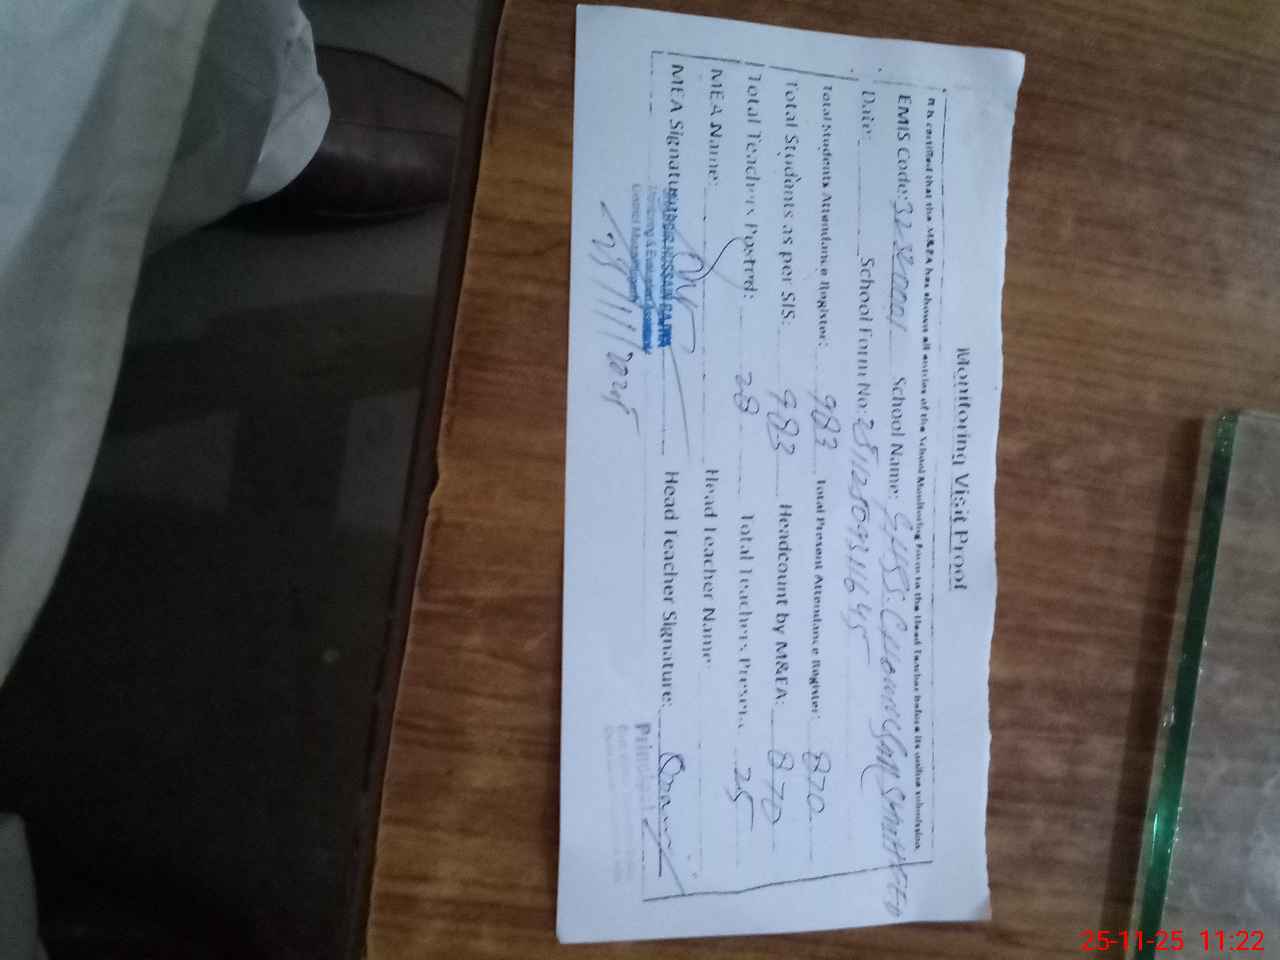 Monitoring Visit Proof
It is certified that the M&EA has shown all entries of the School Monitoring Form to the Head Teacher before its online submission.
EMIS Code: 32320001 School Name: GHSS. CHOWK
Date: School Form No:
Total Students Attendance Register: 983 Total Present Attendance Register: 870
Total Students as per SIS: 983 Headcount by M&EA: 870
Total Teachers Posted: 28 Total Teachers Present 25
MEA Name: Head Teacher Name:
MEA Signature Head Teacher Signature:
HUSSAIN
Monitoring & Evaluation Assistant
District
Principal
25-11-25 11:22